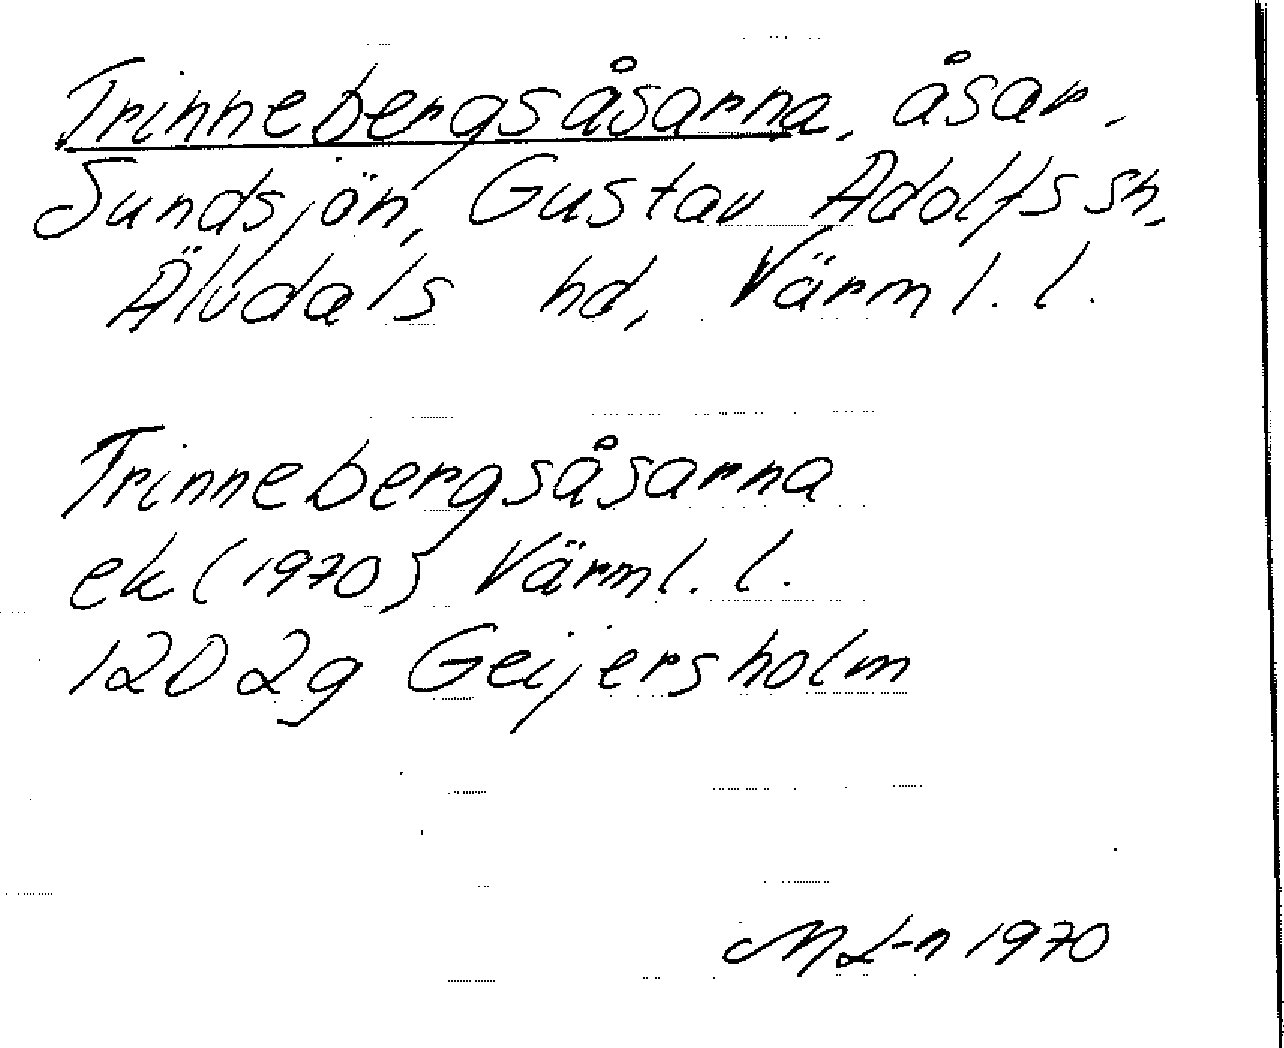 Trinnebergsåsarna, åsar,
Sundsjön, Gustav Adolfs sn,
Älvdals hd, Värml. l.
Trinnebergsåsarna
ek (1970) Värml. l.
12D 2g Geijersholm
M L-n 1970